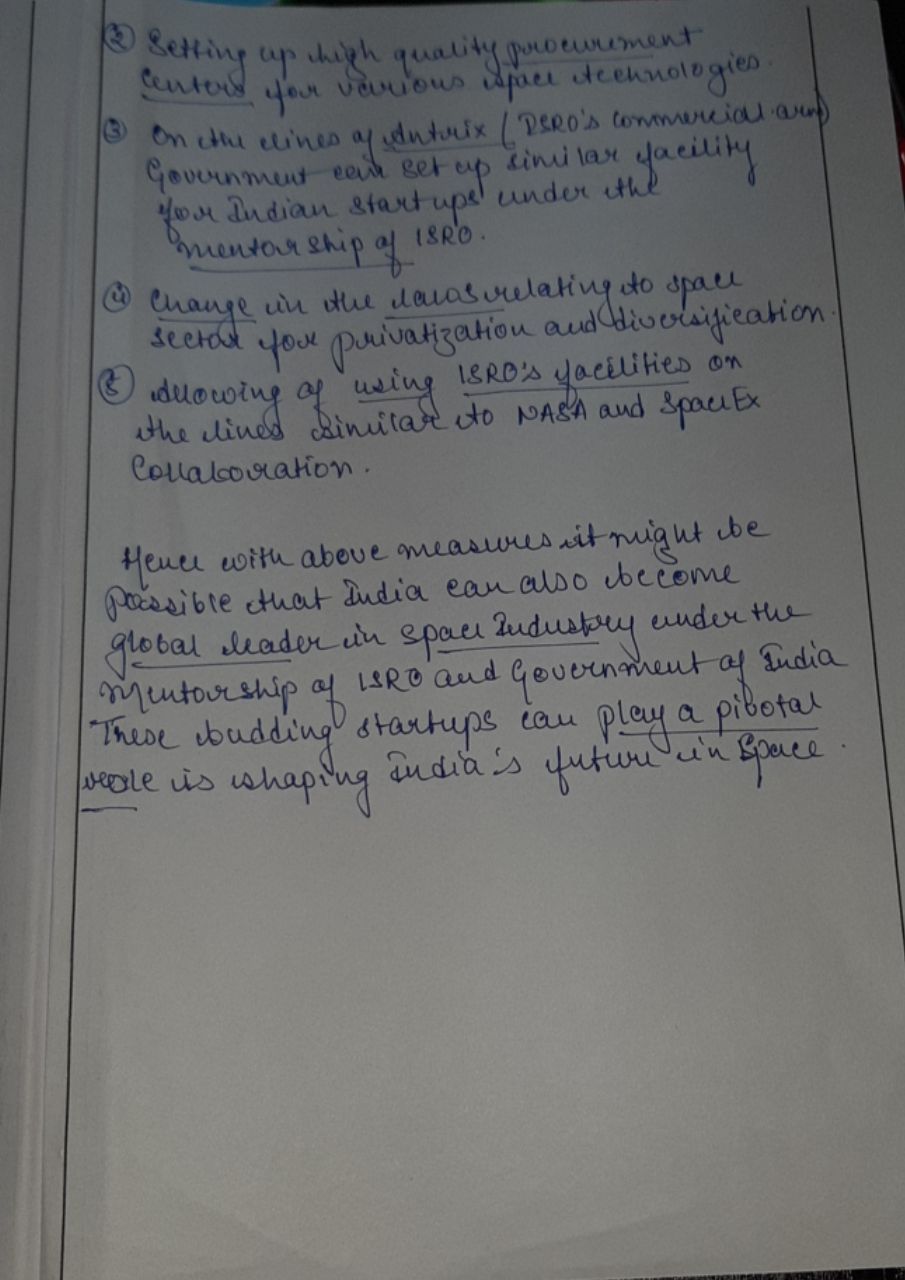 ② Setting up high quality procurement
centers for various space technologies.
③ On the lines of Antrix (ISRO's commercial arm)
Government can set up similar facility
for Indian startups under the
mentorship of ISRO.
④ Change in the laws relating to space
sector for privatization and diversification.
⑤ Allowing of using ISRO's facilities on
the lines similar to NASA and SpaceEx
Collaboration.
Hence with above measures it might be
possible that India can also become
global leader in space Industry under the
Mentorship of ISRO and Government of India
These budding startups can play a pivotal
role is shaping India's future in Space.